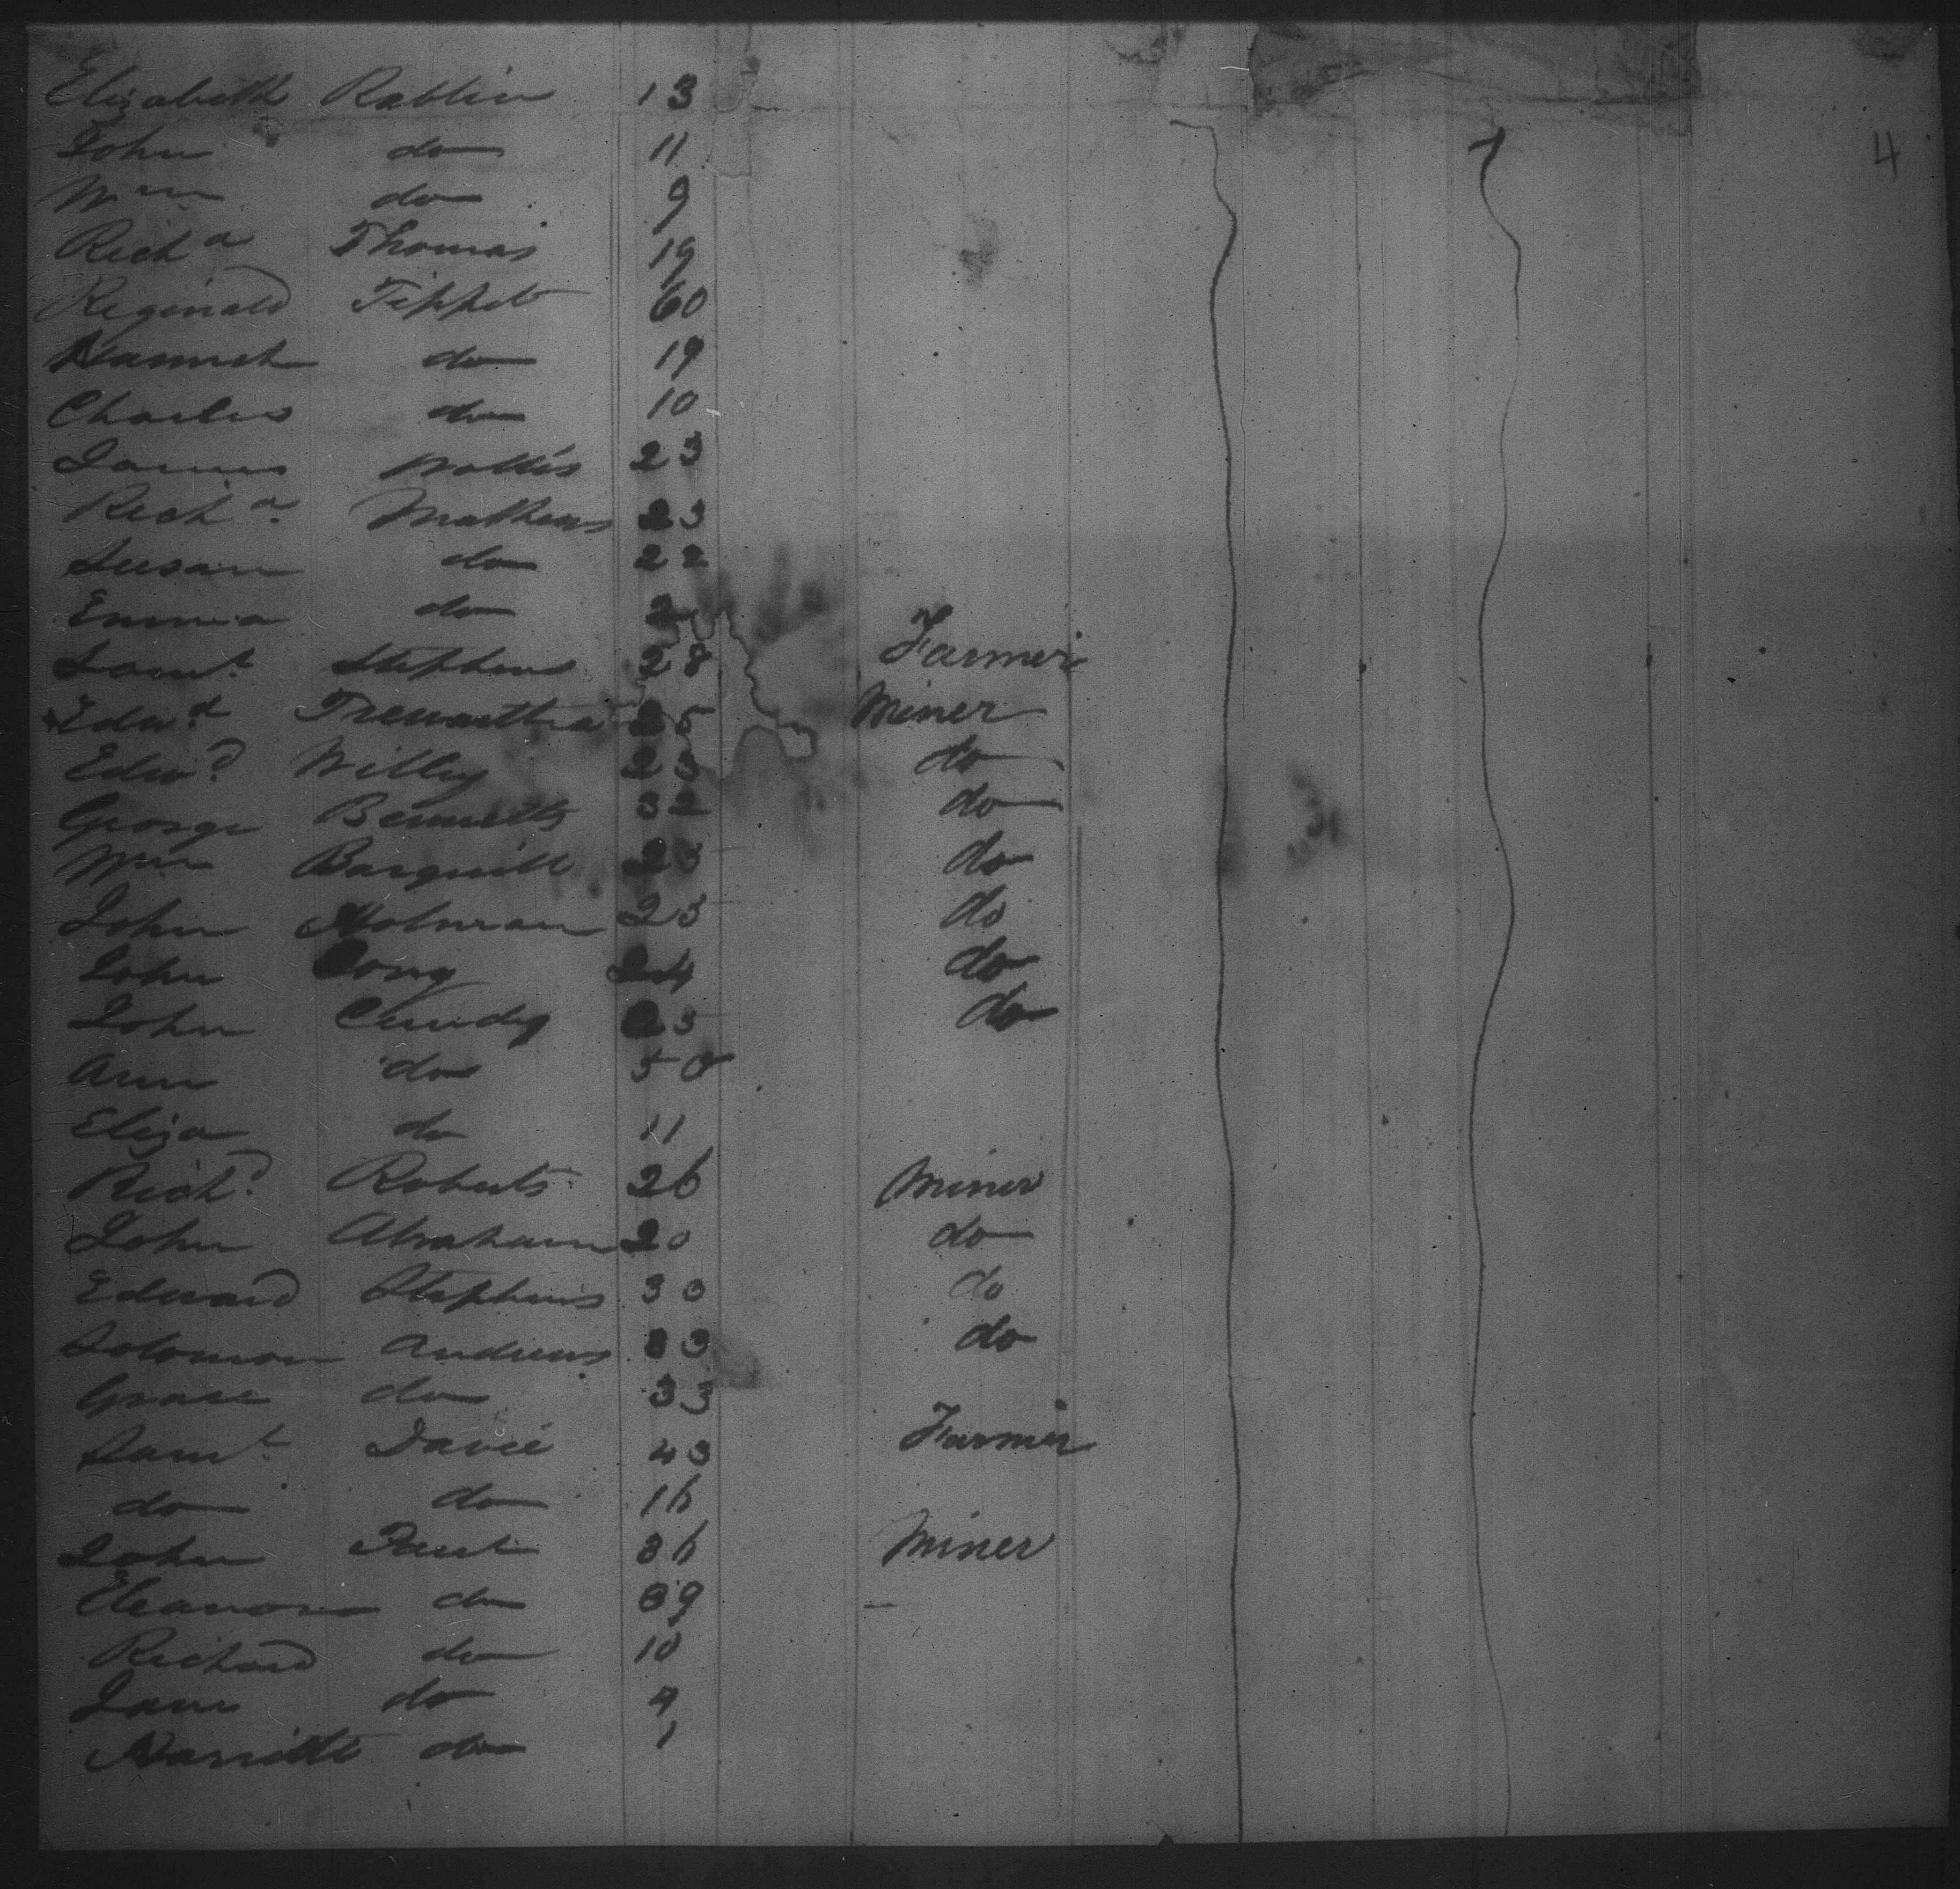 4
Elizabeth Rablin 13
John do 11
Wm do 9
Richd Thomas 19
Reginald Tippet 60
Hannah do 19
Charles do 10
James Wallis 23
Richd. Mathews 23
Susan do 22
Emma do 2
Saml. Stephens 28 Farmer
Edwd. Trewartha 25 Miner
Edwd. Willey 23 do
George Bennetts 32 do
Wm do
John Holman 23 do
John Long 24 do
John Cundy 25 do
Ann do 50
Eliza do 11
Richd. Roberts 26 Miner
John Abraham 20 do
Edward Stephens 30 do
Solomon Andrews 33 do
Grace do 33
Saml. Davie 43 Farmer
do do 16
John Paul 36 Miner
Eleanor do 39 —
Richard do 10
Jane do 4
Harriett do 1